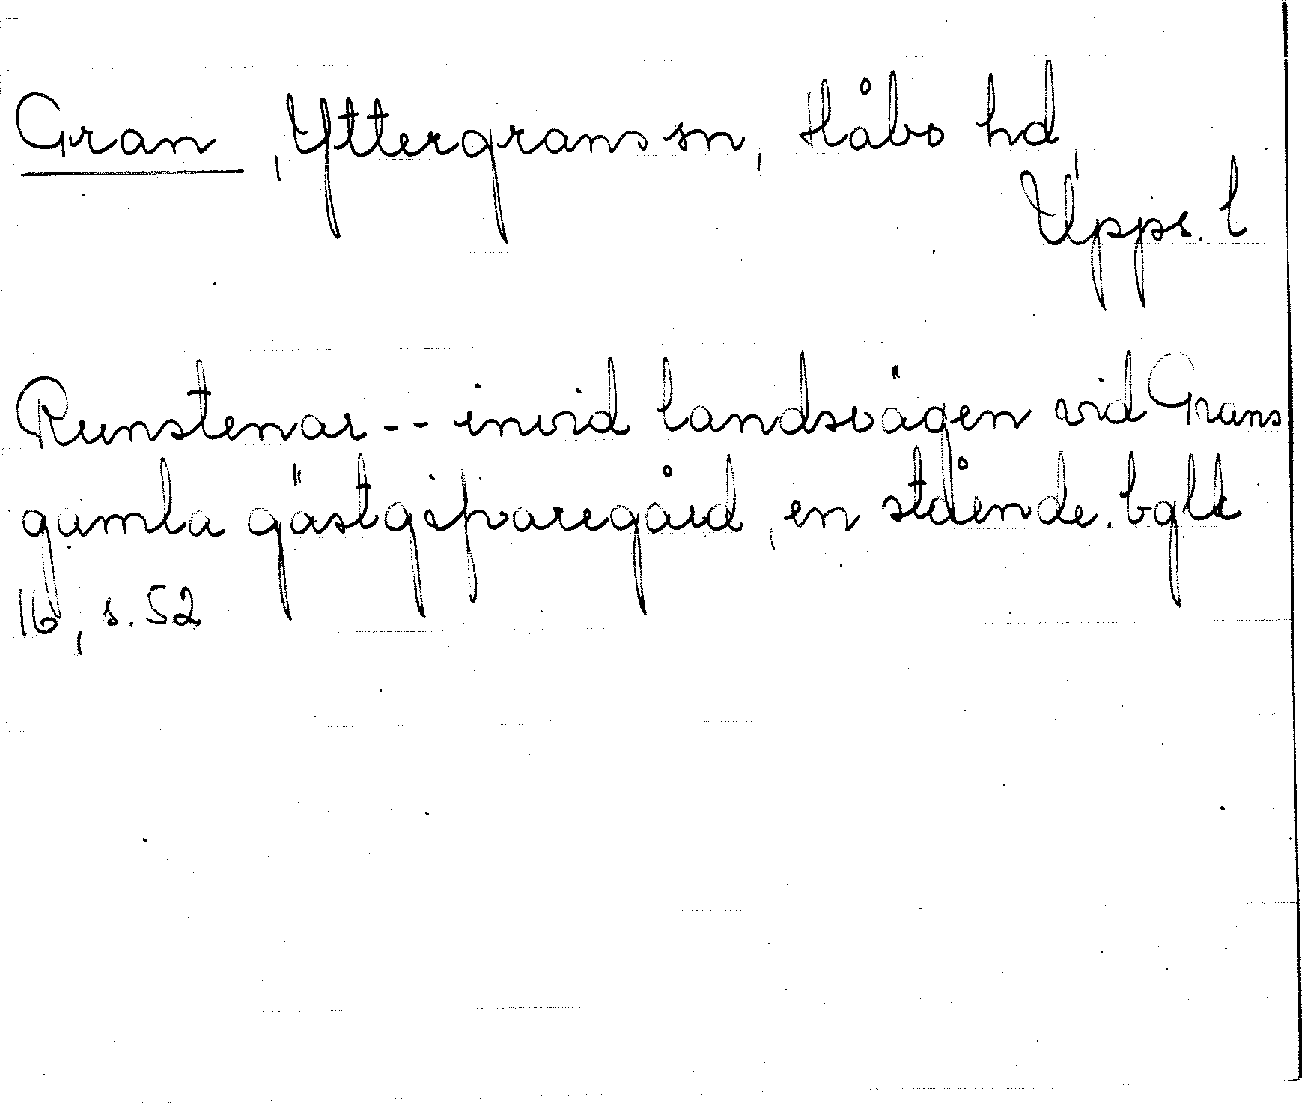 Gran, Yttergrans sn, Håbo hd,
Upps. l
Runstenar -- invid landsvägen vid Grans
gamla gästgifvaregård, en stående. bglt
16, s. 52